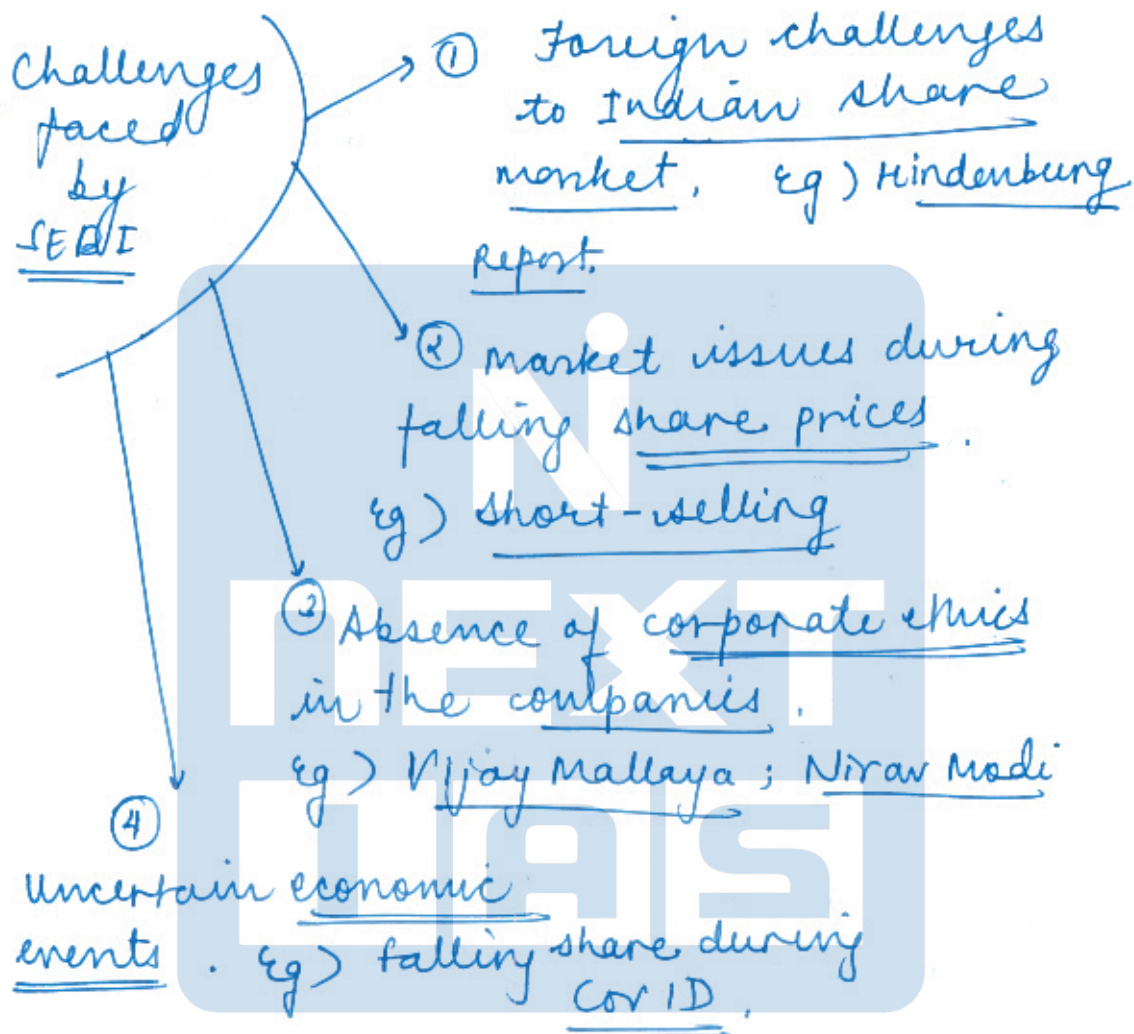 Challenges
faced
by
SEBI
① Foreign challenges
to Indian share
market. Eg) Hindenburg
Report.
② Market issues during
falling share prices.
Eg) Short-selling
③ Absence of corporate ethics
in the companies.
Eg) Vijay Mallaya; Nirav Modi
④
Uncertain economic
events. Eg) falling share during
COVID.
NEXT
IAS